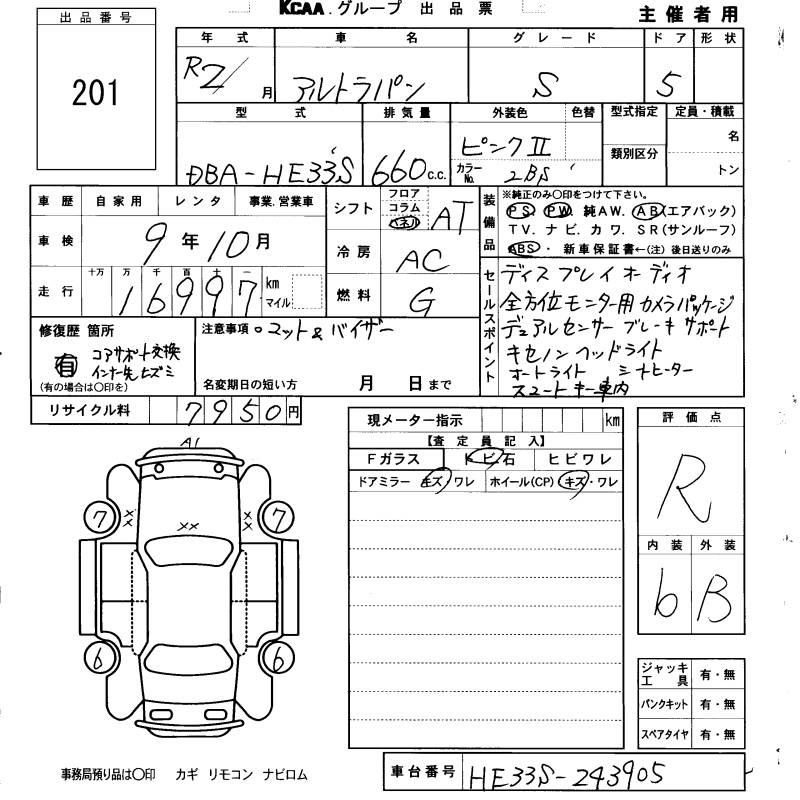 KCAA.グループ 出品票 主催者用
出品番号
201
年式 車名 グレード ドア 形状
R2/ 月 アルトラパン S 5
型式 排気量 外装色 色替 型式指定 定員・積載
DBA-HE33S 660 c.c. ピンクII カラーNo. 2BS 類別区分 名 トン
車歴 自家用 レンタ 事業.営業車
車検 9年10月
走行 十万 万 千 百 十 一
16997 km マイル
シフト フロア コラム パネル AT
冷房 AC
燃料 G
装備品 ※純正のみ○印をつけて下さい。
PS. PW. 純AW. AB(エアバック)
TV. ナビ. カワ. SR(サンルーフ)
ABS・新車保証書←(注)後日送りのみ
セールスポイント
ディスプレイオーディオ
全方位モニター用カメラパッケージ
デュアルセンサーブレーキサポート
キセノンヘッドライト
オートライト シートヒーター
スマートキー車内
修復歴 箇所
有 コアサポート交換
インナー先ヒズミ
(有の場合は○印を)
注意事項 ・マット&バイザー
名変期日の短い方 月 日まで
リサイクル料 7950円
現メーター指示 km
【査定員記入】
Fガラス トビ石 ヒビワレ
ドアミラー キズ/ワレ ホイール(CP) キズ・ワレ
評価点
R
内装 外装
b B
A1
7 XX XX XX 7
6 6
ジャッキ工具 有・無
パンクキット 有・無
スペアタイヤ 有・無
事務局預り品は○印 カギ リモコン ナビロム
車台番号 HE33S-243905